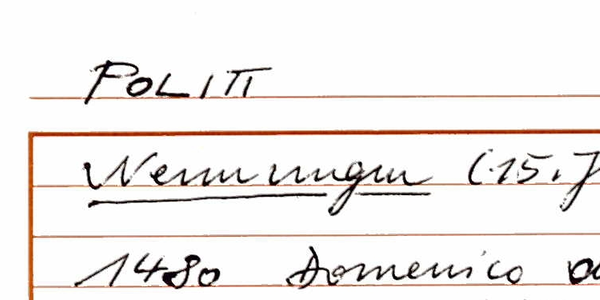 POLITI
Nennungen (15. J
1480 Domenico d